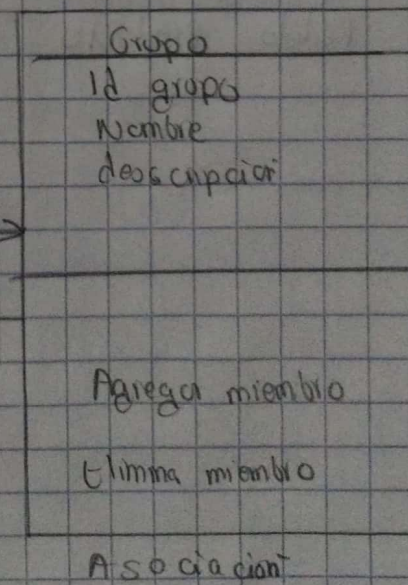 Grupo
Id grupo
Nombre
descripcion
Agrega miembro
Elimina miembro
Asociacion